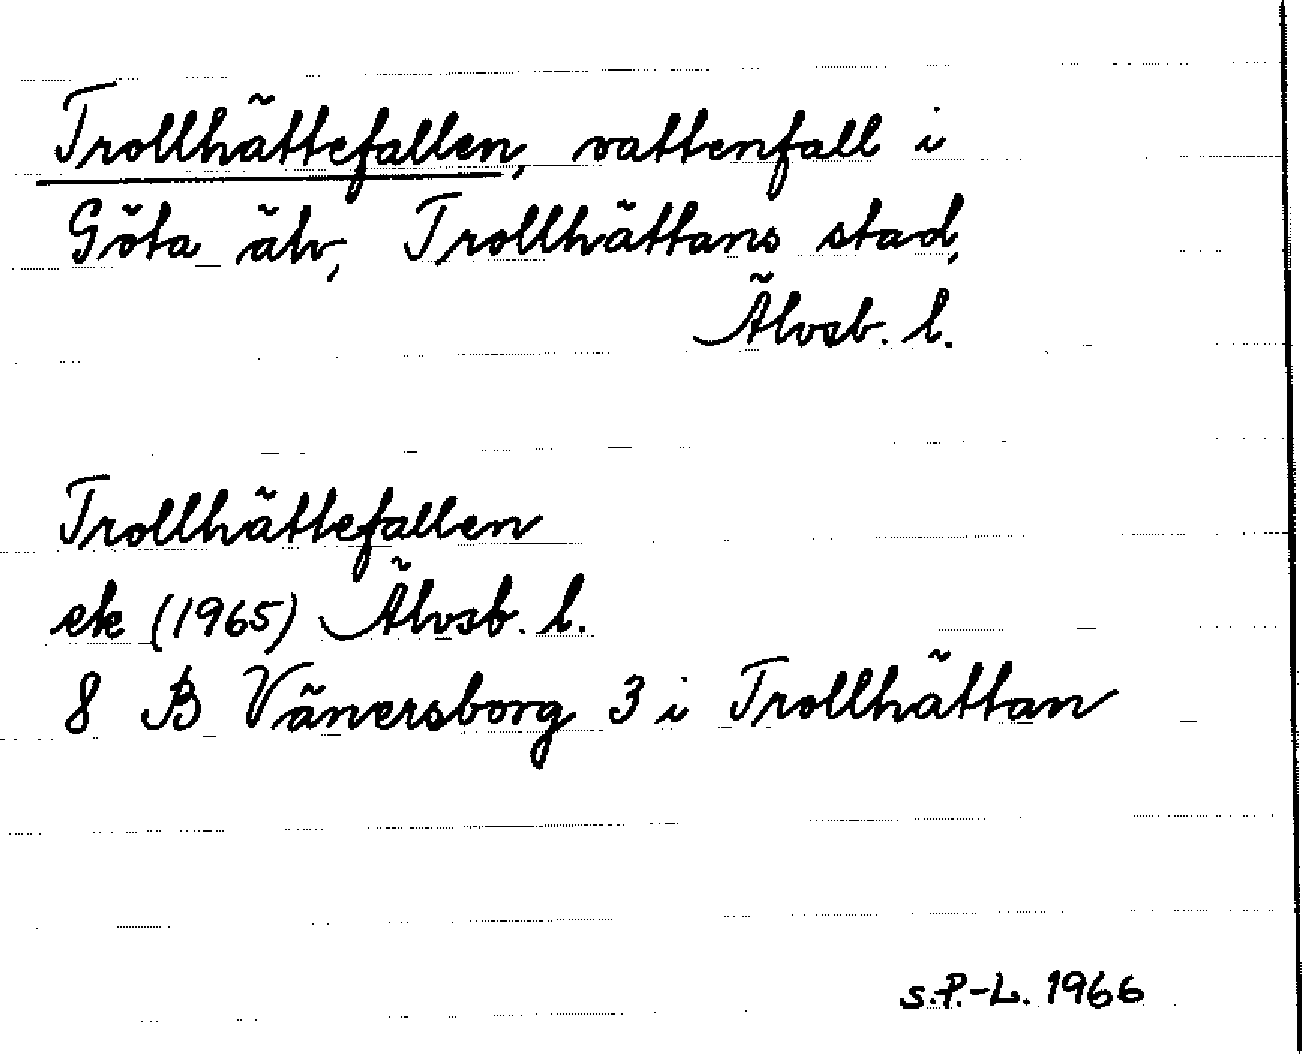 Trollhättefallen, vattenfall i
Göta älv, Trollhättans stad,
Älvsb. l.
Trollhättefallen
ek (1965) Älvsb. l.
8 B Vänersborg 3 i Trollhättan
S.P.-L. 1966